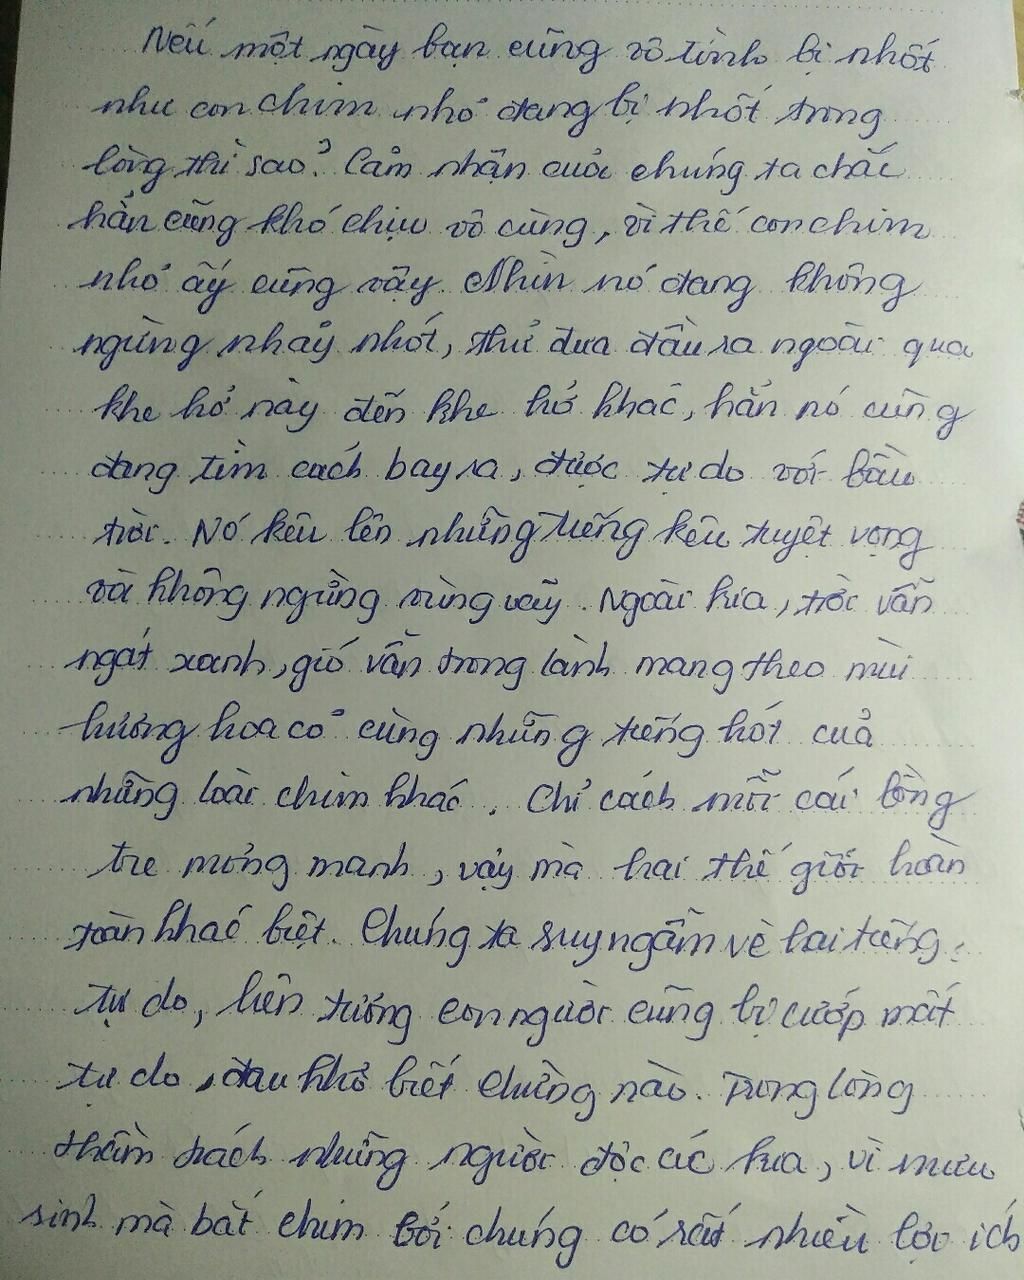 Nếu một ngày bạn cũng vô tình bị nhốt
như con chim nhỏ đang bị nhốt trong
lồng thì sao? Cảm nhận của chúng ta chắc
hẳn cũng khó chịu vô cùng, vì thế con chim
nhỏ ấy cũng vậy. Nhìn nó đang không
ngừng nhảy nhót, thử đưa đầu ra ngoài qua
khe hở này đến khe hở khác, hẳn nó cũng
đang tìm cách bay ra, được tự do với bầu
trời. Nó kêu lên những tiếng kêu tuyệt vọng
và không ngừng vùng vẫy. Ngoài kia, trời vẫn
ngát xanh, gió vẫn trong lành mang theo mùi
hương hoa cỏ cùng những tiếng hót của
những loài chim khác. Chỉ cách mỗi cái lồng
tre mỏng manh, vậy mà hai thế giới hoàn
toàn khác biệt. Chúng ta suy ngẫm về hai tiếng:
tự do, liên tưởng con người cũng bị cướp mất
tự do, đau khổ biết chừng nào. Trong lòng
thầm trách những người độc ác kia, vì mưu
sinh mà bắt chim bởi chúng có rất nhiều lợi ích